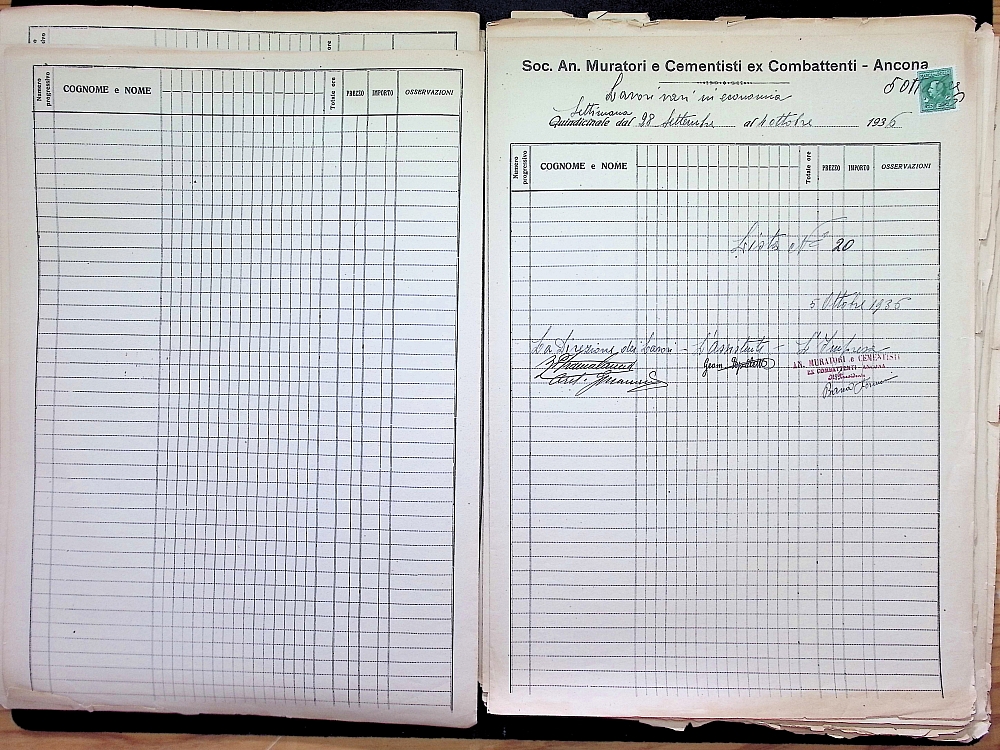 Numero progressivo
COGNOME e NOME
Totale ore
PREZZO
IMPORTO
OSSERVAZIONI
Soc. An. Muratori e Cementisti ex Combattenti - Ancona
Lavori vari in economia
Settimana
Quindicinale dal 28 Settembre al 4 ottobre 1936
Numero progressivo
COGNOME e NOME
Totale ore
PREZZO
IMPORTO
OSSERVAZIONI
Lista N° 20
5 Ottobre 1936
La Direzione dei Lavori - L'Assistente - L'Impresa
AN. MURATORI e CEMENTISTI
EX COMBATTENTI - ANCONA
Geom.
Arch.